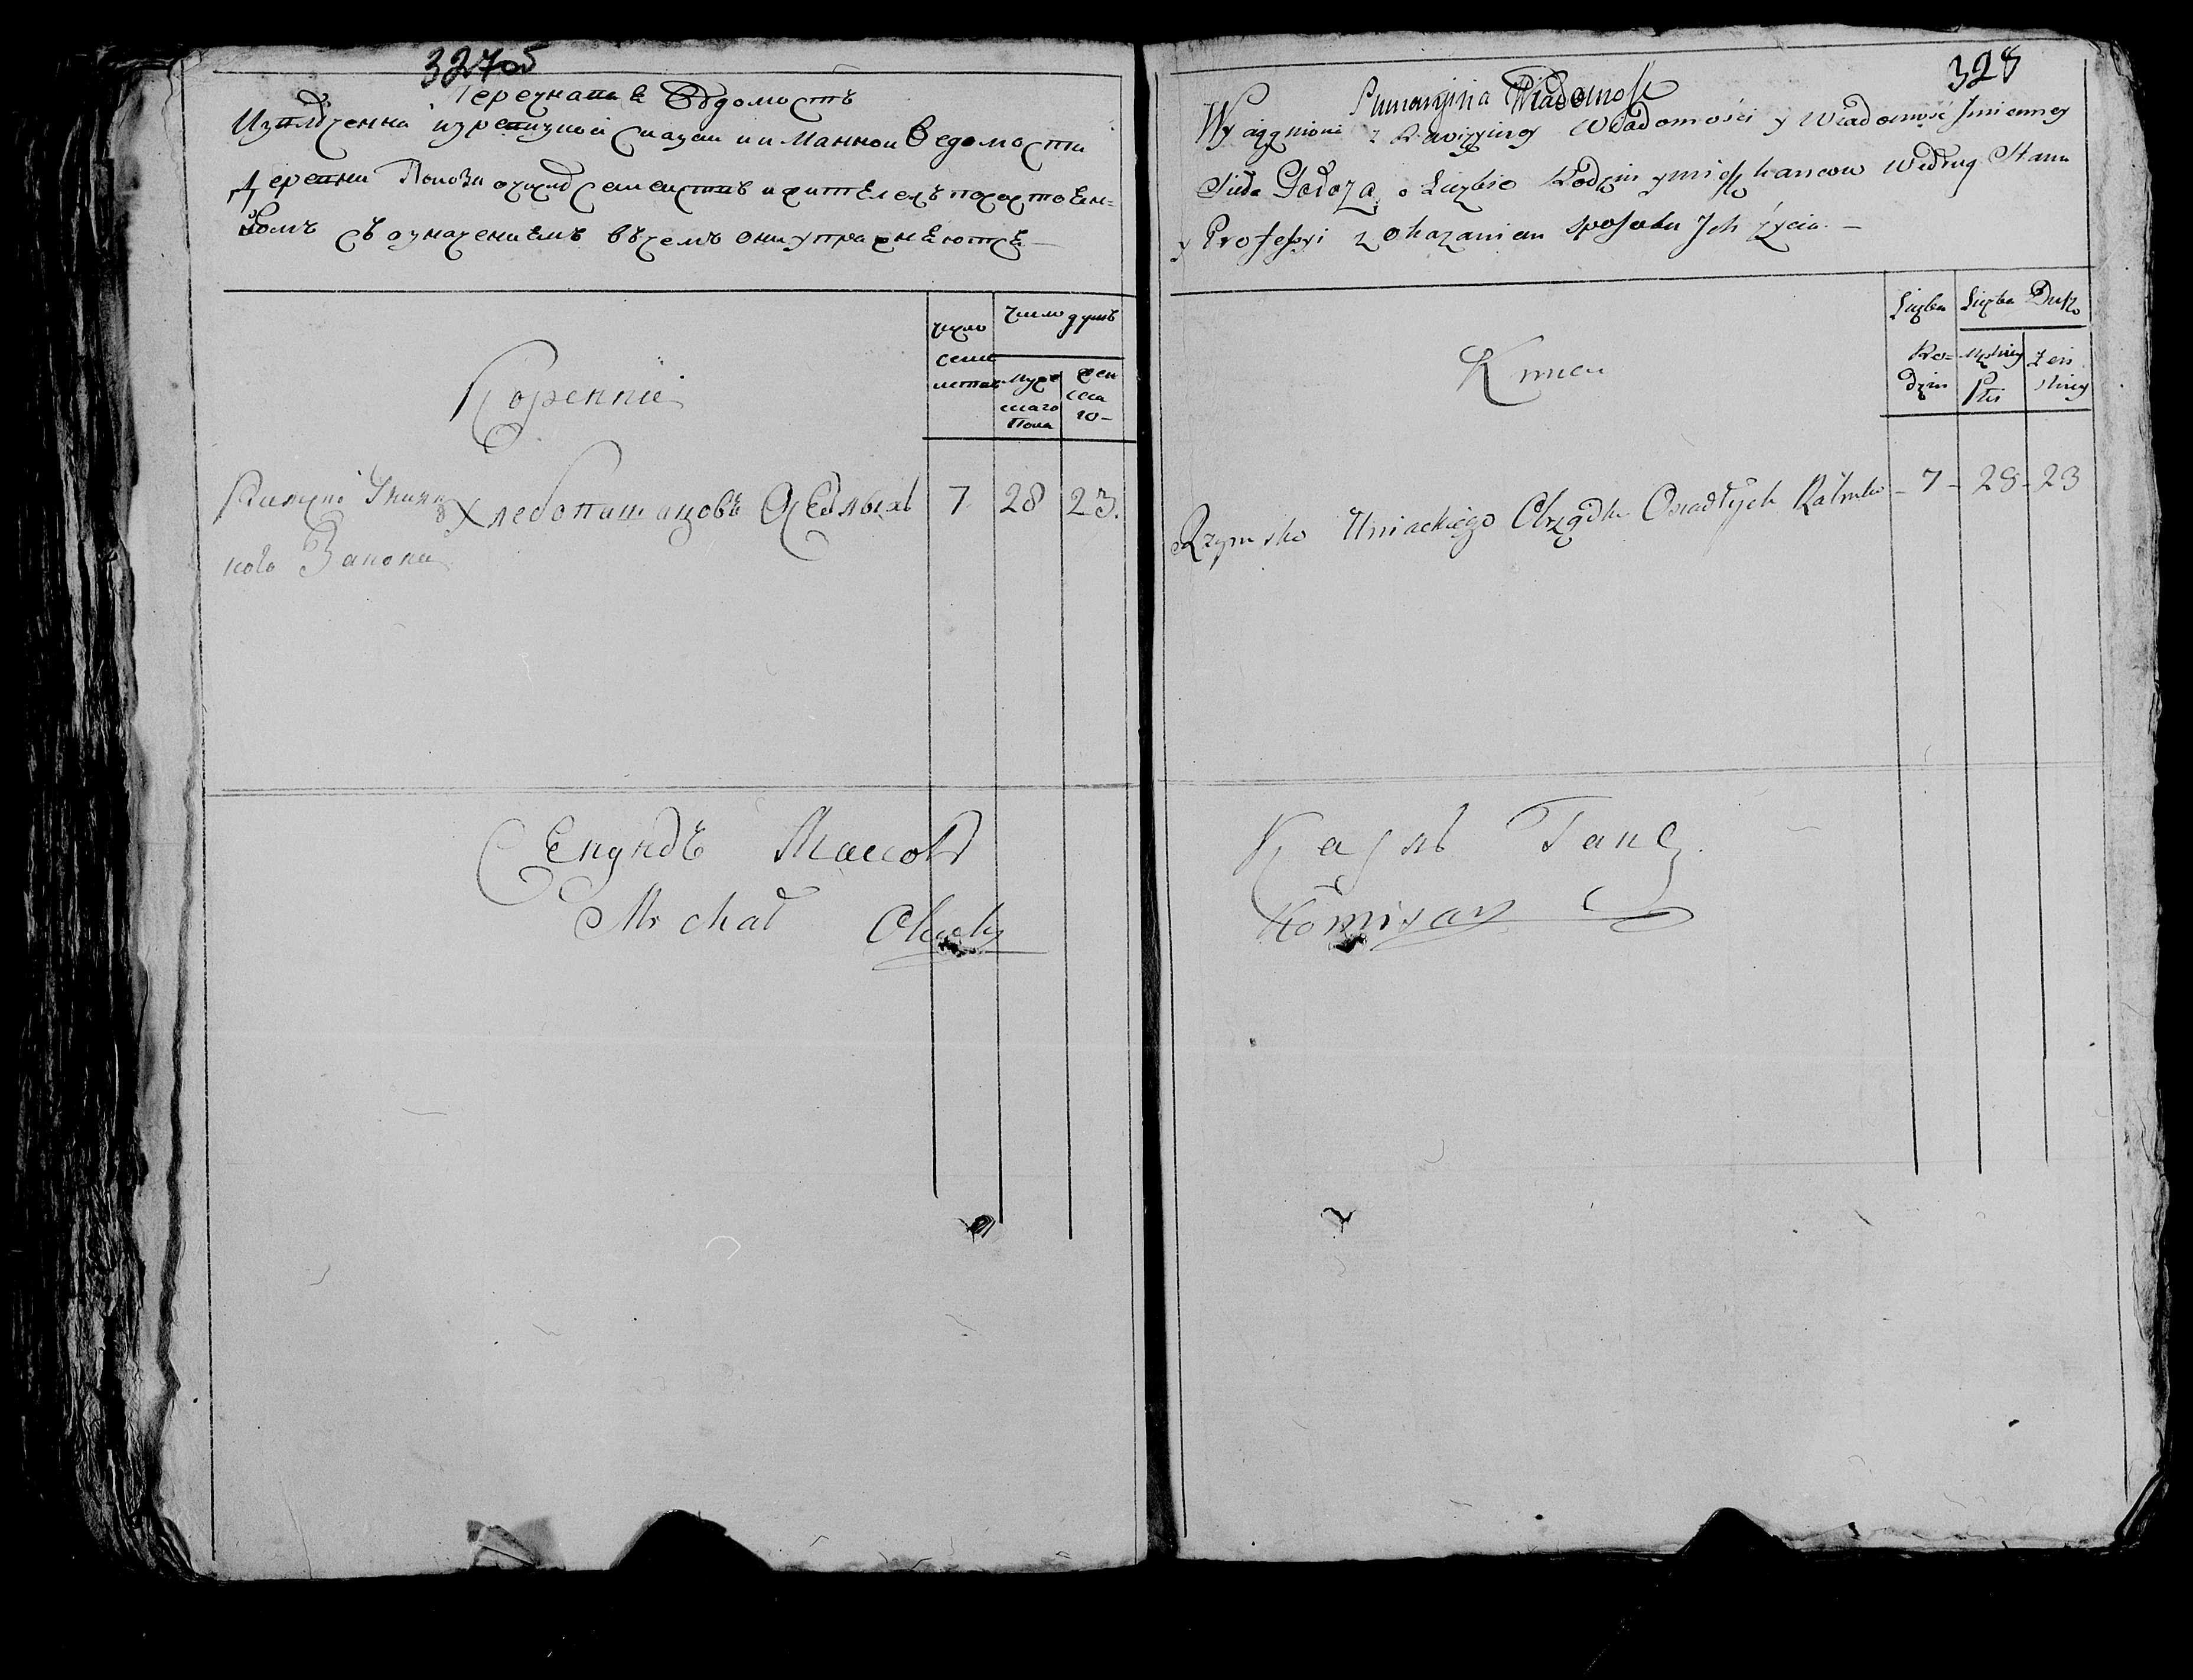 327об
Перечнавая Вѣдомость
Извлеченна изревизкой сказки и имянной Ведомости
Деревни о числѣ семействъ и жителехъ посостоян=
номъ съ означениемъ въчемъ они упражняются —
число семе йствъ
число душъ
мужескаго пола
женскаго
Коренніе
Римско Униятского Закона Хлебопашцовъ Оседлыхъ 7 28 23.
Секундъ Maecoвъ
Michał
328
Summaryina Wiadomość
Wyciągnioni z Rewizyiney Wiadomości y Wiadomość Jmienney
Sioła o Liczbie Rodzin y mieszkancow według Stanu
y Profesyi z okazaniem sposobu Jch życia. —
Liczba Rodzin
Liczba Dusz
Męzkiey Płci
Żeńskiey
Kmieci
Rzymsko Uniackiego Obrządku Osiadłych Rolnikow – 7 – 28 – 23
Карлъ Ганс.
Komisarz